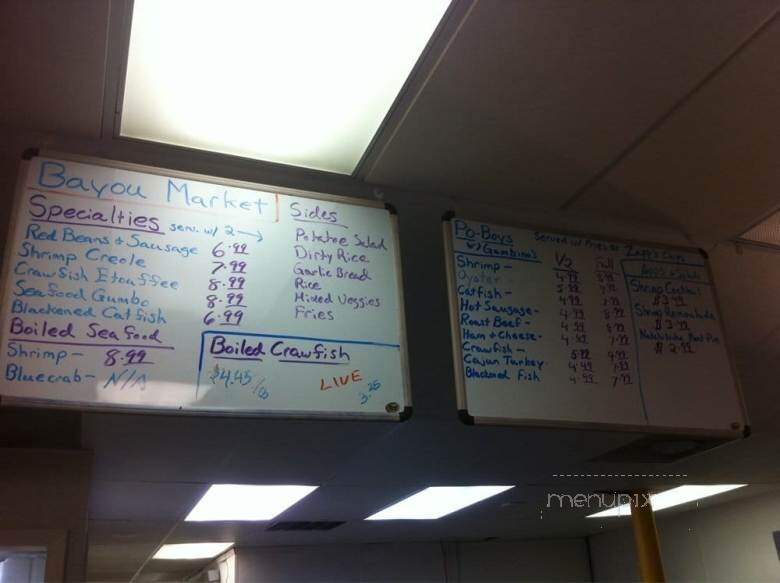 Bayou Market
Specialties serv. w/ 2
Red Beans + Sausage 6.99
Shrimp Creole 7.99
Crawfish Etouffee 8.99
Seafood Gumbo 8.99
Blackened Catfish 6.99
Boiled Sea food
Shrimp - 8.99
Bluecrab - N/A
Sides
Potatoe Salad
Dirty Rice
Garlic Bread
Rice
Mixed Veggies
Fries
Boiled Crawfish
$4.45/lb
LIVE 3.25
Po-Boys Served w/ Fries or Zapp's Chips
w/ Gambino's 1/2 Full
Shrimp - 4.99
Oyster - 5.99
Catfish - 4.99
Hot Sausage - 4.99
Roast Beef - 4.99
Ham + Cheese - 4.99
Crawfish - 5.99 9.99
Cajun Turkey 4.99 7.99
Blackened Fish 4.99 7.99
Shrimp Cocktail
$3.99
Shrimp Remoulade
$3.99
Natchitoches Meat Pie
$2.99
menupix